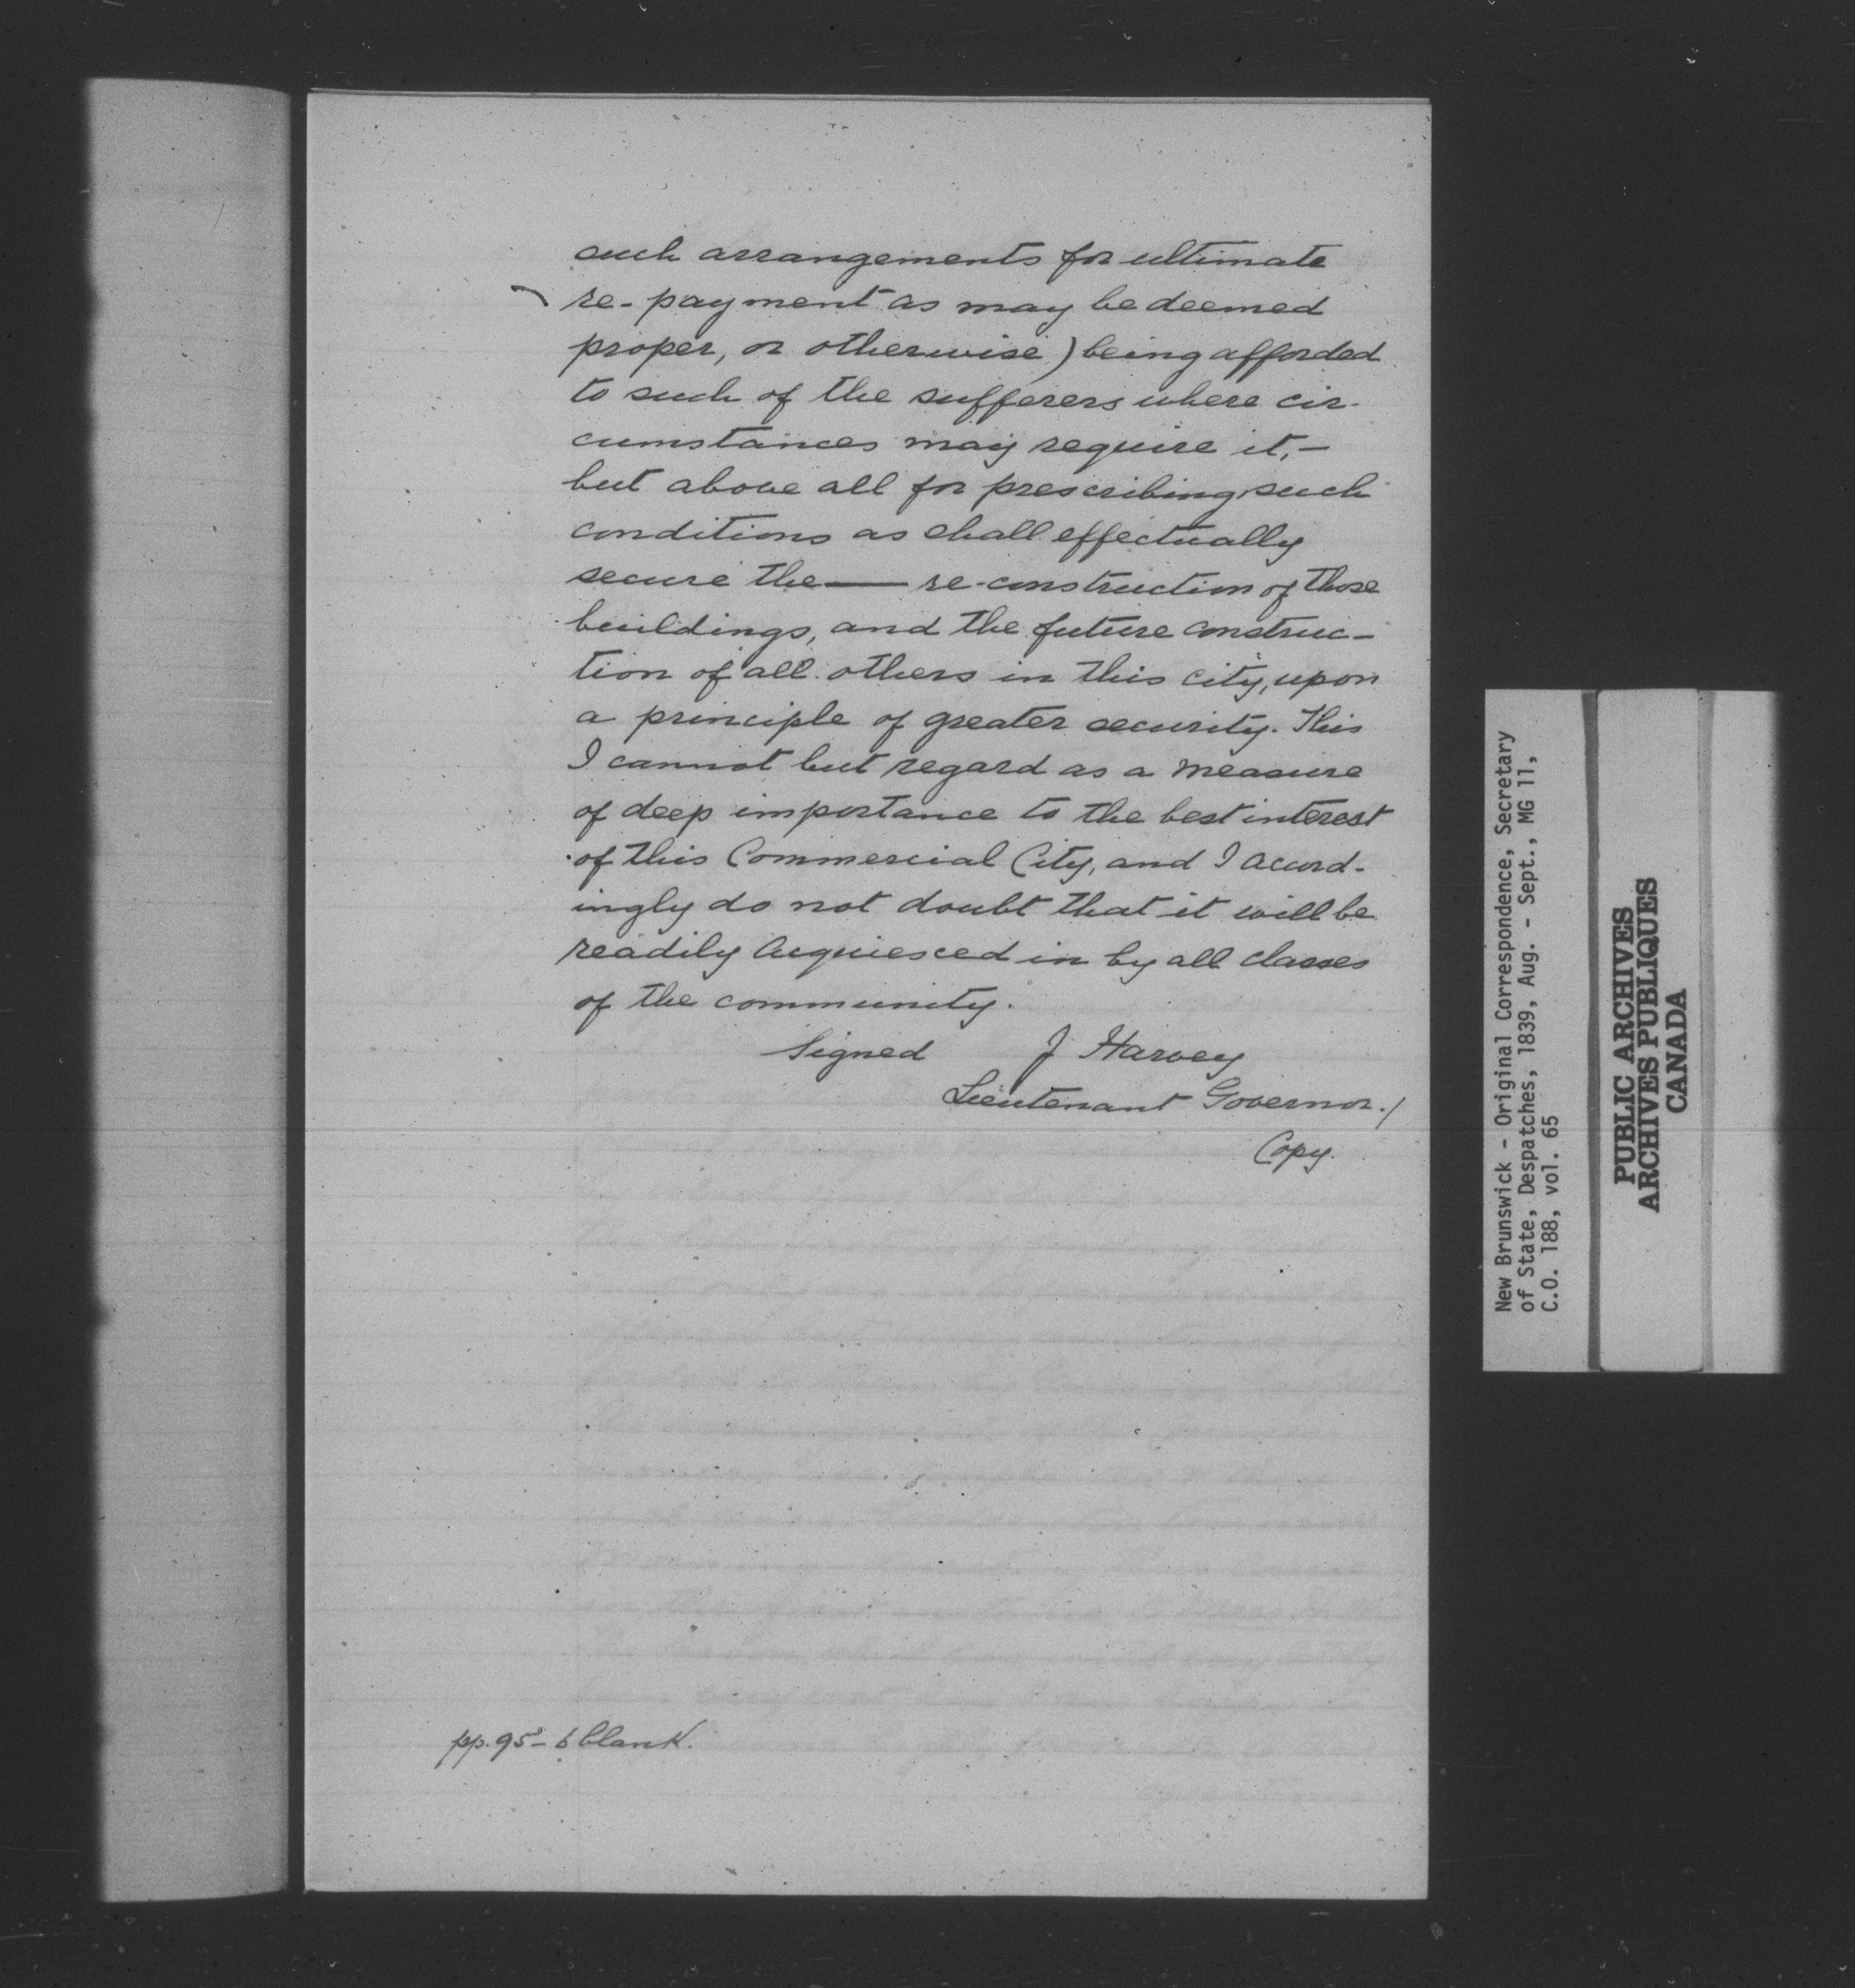 such arrangements for ultimate
re-payment as may be deemed
proper, or otherwise) being afforded
to such of the sufferers where cir-
cumstances may require it,-
but above all for prescribing such
conditions as shall effectually
secure the — re-construction of those
buildings, and the future construc-
tion of all others in this city, upon
a principle of greater security. This
I cannot but regard as a measure
of deep importance to the best interest
of this Commercial City, and I accord-
ingly do not doubt that it will be
readily acquiesced in by all classes
of the community.
Signed J Harvey
Lieutenant Governor./
Copy.
pp. 95-6 blank.
New Brunswick - Original Correspondence, Secretary
of State, Despatches, 1839, Aug. - Sept., MG 11,
C.O. 188, vol. 65
PUBLIC ARCHIVES
ARCHIVES PUBLIQUES
CANADA